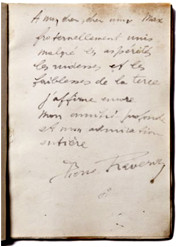 A mon cher ami Max
fraternellement unis
malgré les aspérités
les rudesses et les
faiblesses de la terre
j'affirme encore
mon amitié profonde
et mon admiration
entière